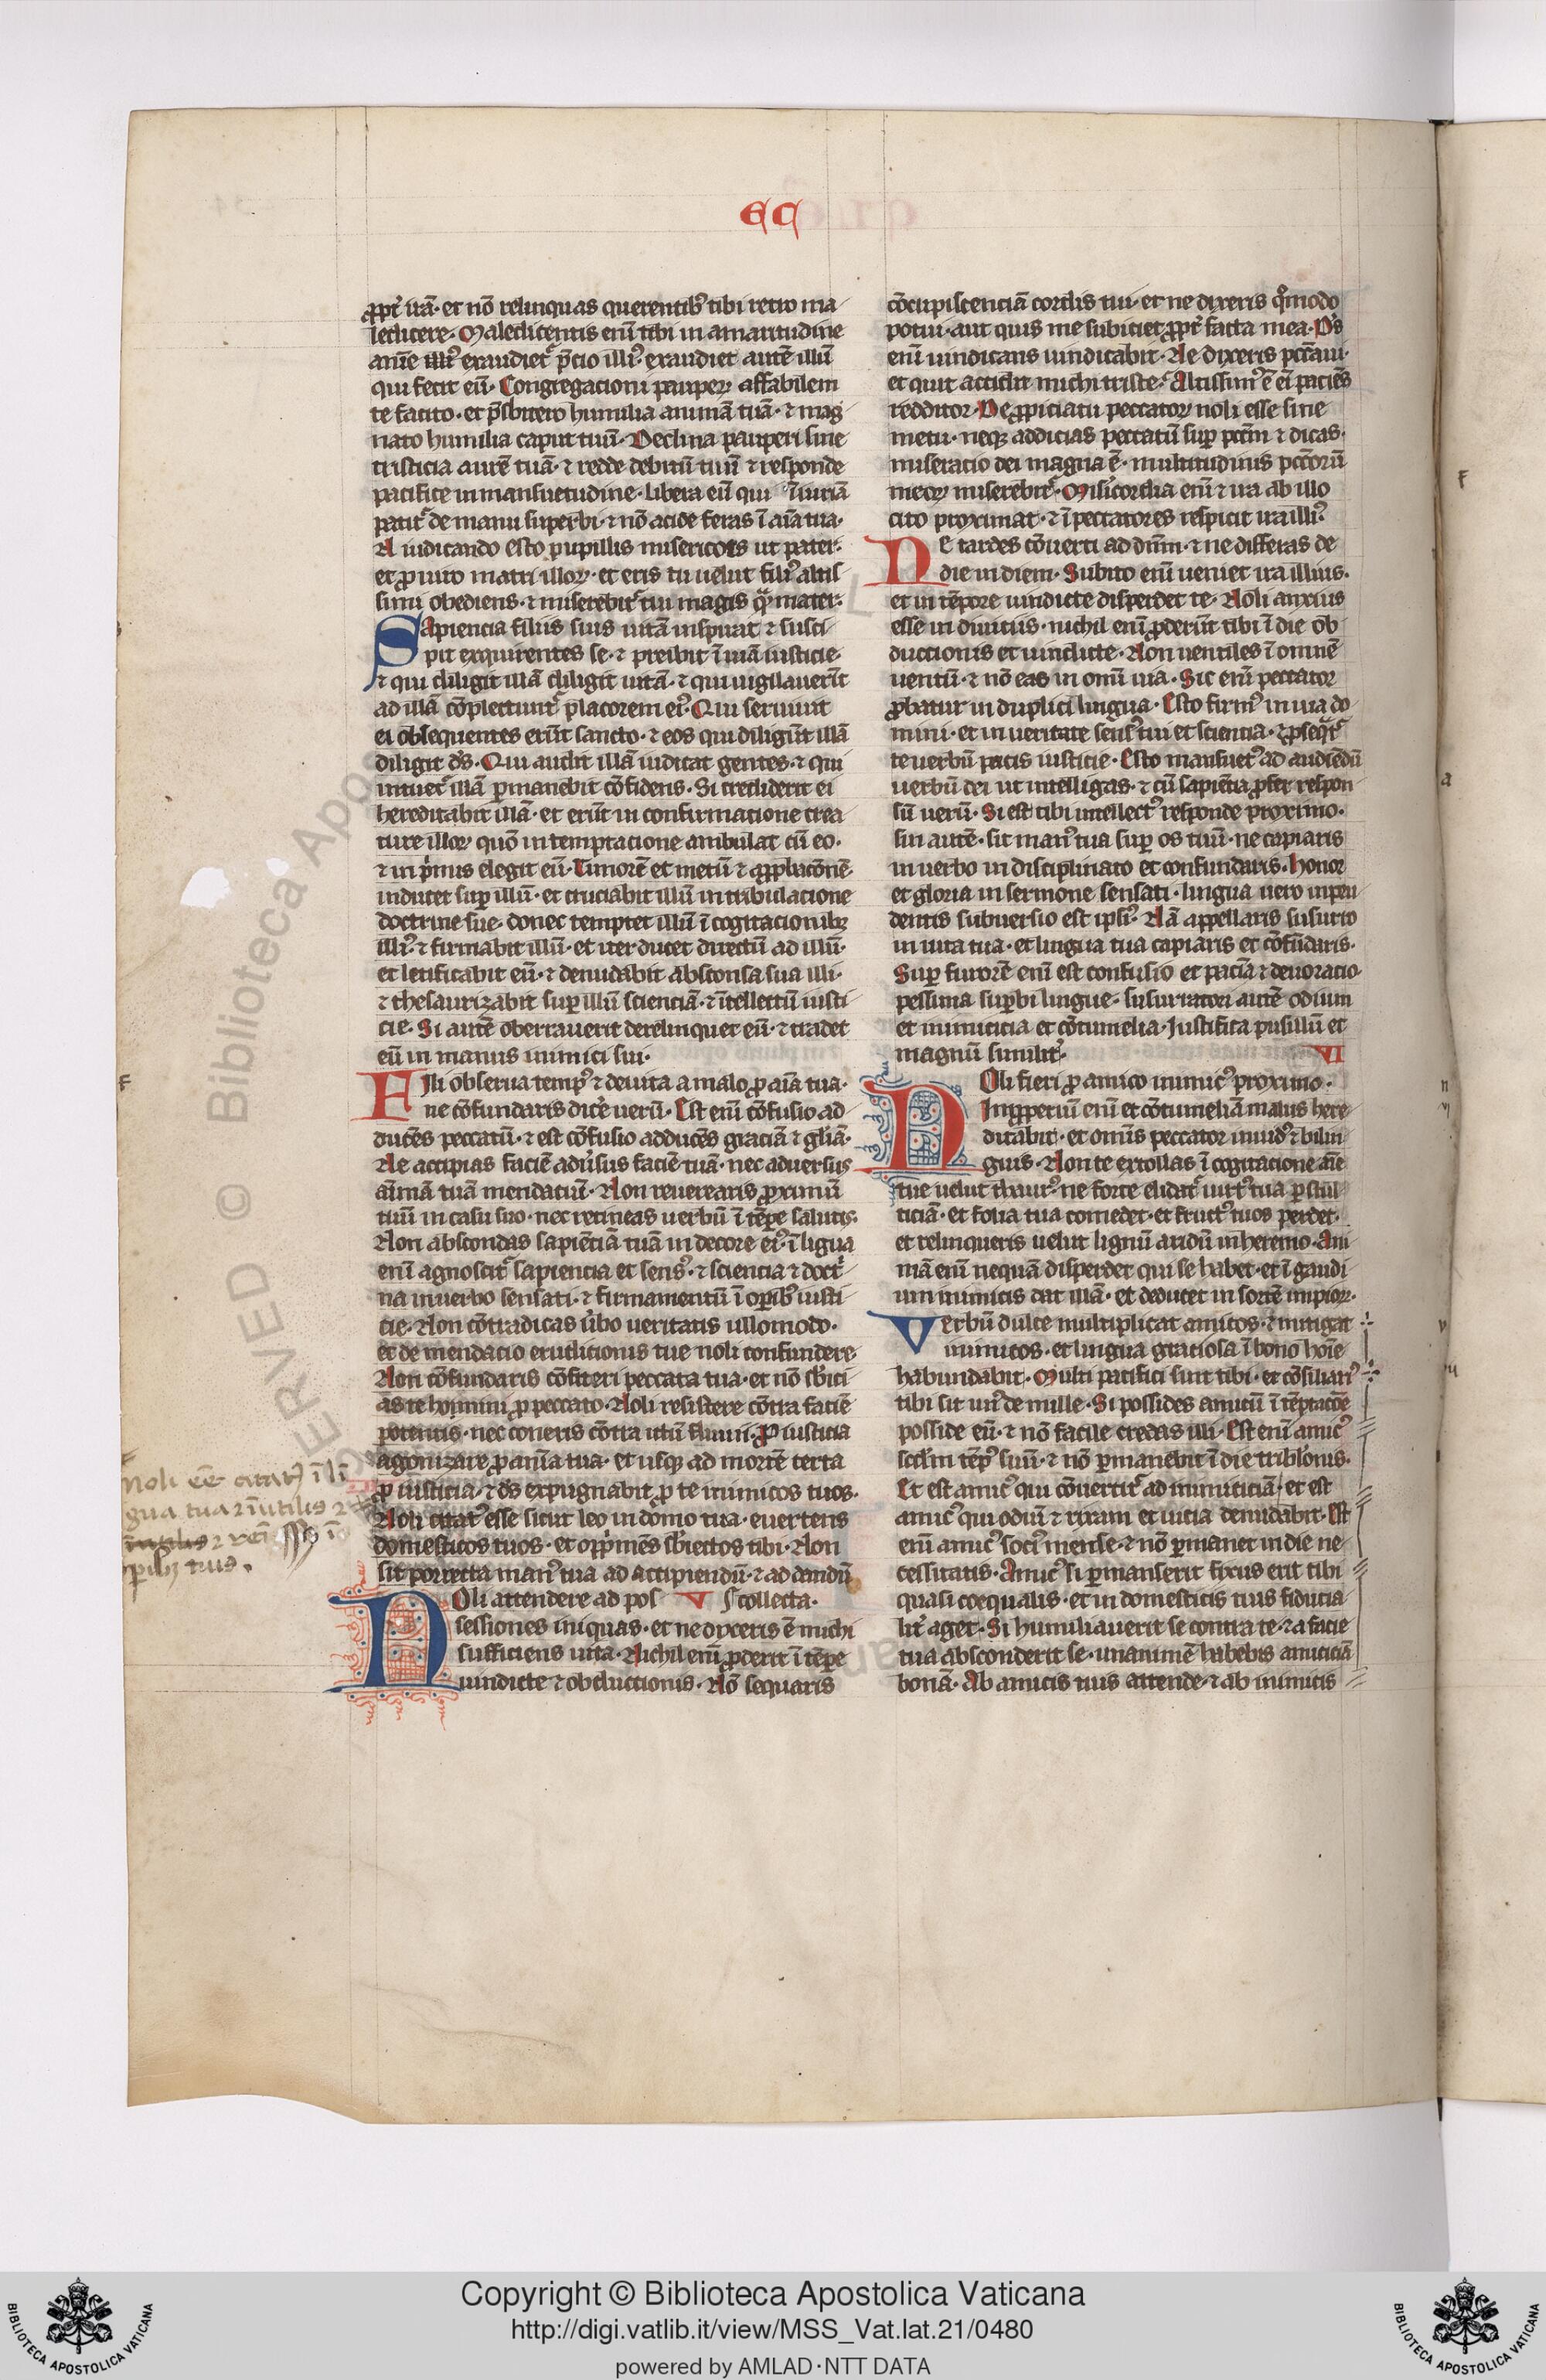 EC
ꝓpt̓ irā· et nō relinquas querentib᷒ tibi retro ma
ledicere· Maledicentis enī tibi in amaritudine
anīe exaudiet᷑ p̄cio illi᷒· exaudiet autē illū
qui fecit eū· Congregacioni pauperꝝ affabilem
te facito· et p̄sbitero humilia animā tuā· ⁊ mag
nato humilia caput tuū· Declina pauperi sine
tristicia aurē tuā· ⁊ redde debitū tuū ⁊ responde
pacifice in mansuetudine· libera eū qui īiuriā
patit᷑ de manu superbi· ⁊ nō acide feras ī aīa tua·
A iudicando esto pupillis misericors ut pater·
et ꝓ uiro matri illoꝝ· et eris tu uelut fili᷒ altis
simi obediens· ⁊ miserebit᷑ tui magis qᷓ mater·
Sapiencia filiis suis uitā inspirat ⁊ susci
pit exquirentes se· ⁊ preibit ī uiā iusticie·
⁊ qui diligit illā diligit uitā· ⁊ qui uigilauerīt
ad illā cōplectunt᷑ placorem ei᷒· Qui seruiunt
ei obsequentes erūt sancto· ⁊ eos qui diligūt illā
diligit ds̄· Qui audit illā iudicat gentes· ⁊ qui
intuet᷑ illā ꝑmanebit cōfidens· Si crediderit ei
hereditabit illā· et erūt in confirmacione crea
ture illoꝝ quō in temptacione ambulat cū eo·
⁊ in p̓mis elegit eū· Timorē et metū ⁊ ꝓbacōnē
inducet suꝑ illū· et cruciabit illū in tribulacione
doctrine sue· donec temptet illū ī cogitacionibꝫ
illi᷒ ⁊ firmabit illū· et iter ducet directū ad illū·
et letificabit eū· ⁊ denudabit absconsa sua illi·
⁊ thesaurizabit suꝑ illū scienciā· ⁊ ītellectū iusti
cie· Si autē oberrauerit derelinquet eū· ⁊ tradet
eū in manus inimici sui·
Fili obserua temp᷒ ⁊ deuita a malo ꝓ aīa tua·
ne cōfundaris dic̓e uerū· Est enī cōfusio ad
ducēs peccatū· ⁊ est cōfusio adducēs graciā ⁊ gl̓iā·
Ne accipias faciē adūsus faciē tuā· nec aduersus
aīmā tuā mendaciū· Non reuerearis ꝓximū
tuū in casu suo· nec retineas uerbū ī tēꝑe salutis·
Non abscondas sapiēciā tuā in decore ei᷒· ī ligua
enī agnoscit᷑ sapiencia et sens᷒· ⁊ sciencia ⁊ doct̓
na in uerbo sensati· ⁊ firmamentū ī oꝑib᷒ iusti
cie· Non cōtradicas ūbo ueritatis ullomodo·
et de mendacio erudicionis tue noli confundere·
Non cōfundaris cōfiteri peccata tua· et nō sb̓ici
ās te homini ꝓ peccato· Noli resistere cōtra faciē
potentis· nec coneris cōtra ictū fluuii· Pro iusticia
agonizare ꝓ anīa tua· et usqꝫ ad mortē certa
ꝓ iusticia· ⁊ ds̄ expugnabit ꝓ te inimicos tuos·
Noli citat᷒ esse sicut leo in domo tua· euertens
domesticos tuos· et opp̓mēs sb̓iectos tibi· Non
sit porrecta man᷒ tua ad accipiendū· ⁊ ad dandū
Noli attendere ad pos V s collecta·
sessiones iniquas· et ne dixeris ē michi
sufficiens uita· Nichil enī ꝓderit ī tēꝑe
uindicte ⁊ obductionis· Nō sequaris
cōcupiscenciā cordis tui· et ne dixeris qōmodo
potui· aut quis me subiciet ꝓpt̓ facta mea· Ds̄
enī uindicans uindicabit· Ne dixeris pctāui·
et quit accidit michi triste· Altissim᷒ ē eī paciēs
redditor· De ꝓpiciatu peccatoꝝ noli esse sine
metu· neqꝫ addicias peccatū suꝑ pctm̄ ⁊ dicas·
miseracio dei magna ē· multitudinis pctōrū
meoꝝ miserebit᷑· Mis̓icordia enī ⁊ ira ab illo
cito proximat· ⁊ ī peccatores respicit ira illi᷒·
Ne tardes cōuerti ad dn̄m· ⁊ ne differas de
die in diem· Subito enī ueniet ira illius·
et in tēpore uindicte disperdet te· Noli anxius
esse in diuiciis· nichil enī ꝓderūt tibi ī die ob
ductionis et uindicte· Non uentiles ī omnē
uentū· ⁊ nō eas in omī uia· Sic enī peccator
ꝓbatur in duplici lingua· Esto firm᷒ in uia do
mini· et in ueritate sens᷒ tui et sciencia· ⁊ ꝓseqt᷑
te uerbū pacis iusticie· Esto mansuet᷒ ad audiēdū
uerbū dei ut intelligas· ⁊ cū sapiētia ꝓfer respon
sū uerū· Si est tibi intellect᷒ responde proximo·
sin autē· sit man᷒ tua suꝑ os tuū· ne capiaris
in uerbo indisciplinato et confundaris· Honor
et gloria in sermone sensati· lingua uero inpru
dentis subuersio est ipsi᷒· Nā appellaris susurro
in uita tua· et lingua tua capiaris et cōfūdaris·
Suꝑ furorē enī est confusio et pacīa ⁊ deuoracio
pessima suꝑbi lingue· susurratori autē odium
et inimicicia et cōtumelia· Justifica pusillū et
magnū similit̓· VI
Noli fieri ꝓ amico inimic᷒ proximo·
Inꝓperiū enī et cōtumeliā malus here
ditabit· et omīs peccator inuid᷒ ⁊ bilin
guis· Non te extollas ī cogitacione aīe
tue uelut thaur᷒· ne forte elidat᷑ uirt᷒ tua ꝑ stul
ticiā· et folia tua comedet· et fruct᷒ tuos perdet·
et relinqueris uelut lignū aridū in heremo· Ani
mā enī nequā disperdet qui se habet· et ī gaudi
um inimicis dat illā· et deducet in sortē impioꝝ·
Verbū dulce multiplicat amicos· ⁊ mitigat
inimicos· et lingua graciosa ī bono hoīe
habundabit· Multi pacifici sint tibi· et cōsiliari᷒
tibi sit un᷒ de mille· Si possides amicū ī tēptacōe
posside eū· ⁊ nō facile credas illi· Est enī amic᷒
scd̓m tēp᷒ suū· ⁊ nō ꝑmanebit ī die tribl̓onis·
Et est amic᷒ qui cōuertit᷑ ad inimiciciā· et est
amic᷒ qui odiū ⁊ rixam et uicia denudabit· Est
enī amic᷒ soci᷒ mense· ⁊ nō ꝑmanet in die ne
cessitatis· Amic᷒ si ꝑmanserit fixus erit tibi
quasi coequalis· et in domesticis tuis fiducia
lit̓ aget· Si humiliauerit se contra te· ⁊ a facie
tua absconderit se· unanimē habebis amiciciā
bonā· Ab amicis tuis attende· ⁊ ab inimicis
Noli eē citat᷒ ī li
gua tua ⁊ īutilis ⁊
oꝑibꝫ tuis·
Copyright © Biblioteca Apostolica Vaticana
http://digi.vatlib.it/view/MSS_Vat.lat.21/0480
powered by AMLAD·NTT DATA
BIBLIOTECA APOSTOLICA VATICANA
BIBLIOTECA APOSTOLICA VATICANA